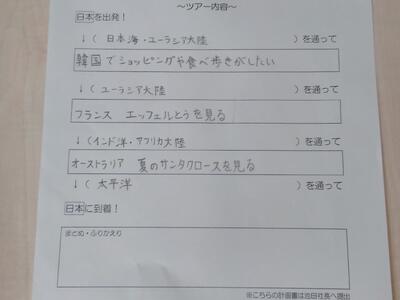 ～ツアー内容～
日本を出発！
↓（ 日本海・ユーラシア大陸 ）を通って
韓国でショッピングや食べ歩きがしたい
↓（ ユーラシア大陸 ）を通って
フランス エッフェルとうを見る
↓（インド洋・アフリカ大陸 ）を通って
オーストラリア 夏のサンタクロースを見る
↓（ 太平洋 ）を通って
日本に到着！
まとめ・ふりかえり
※こちらの計画書は池田社長へ提出